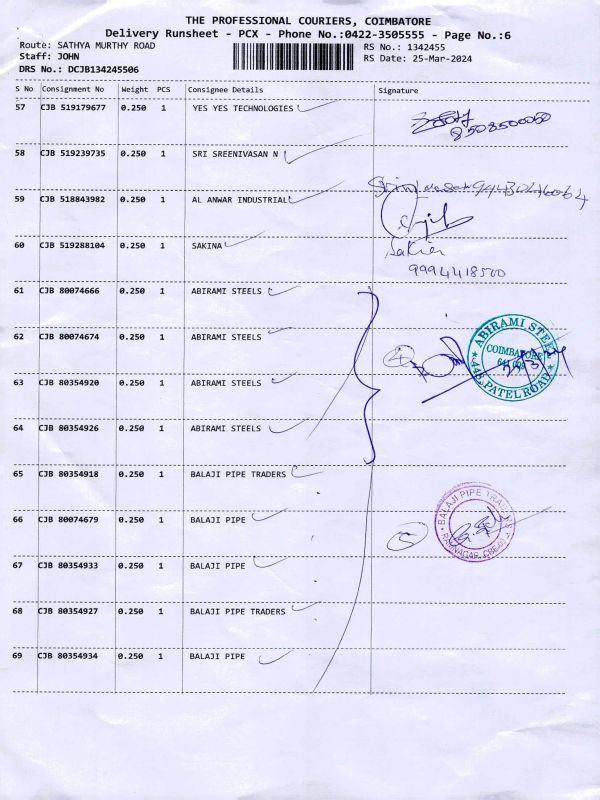 THE PROFESSIONAL COURIERS, COIMBATORE
Delivery Runsheet - PCX - Phone No.:0422-3505555 - Page No.:6
Route: SATHYA MURTHY ROAD RS No.: 1342455
Staff: JOHN RS Date: 25-Mar-2024
DRS No.: DCJB134245506
S No Consignment No Weight PCS Consignee Details Signature
57 CJB 519179677 0.250 1 YES YES TECHNOLOGIES
8508500050
58 CJB 519239735 0.250 1 SRI SREENIVASAN N
59 CJB 518843982 0.250 1 AL ANWAR INDUSTRIAL
60 CJB 519288104 0.250 1 SAKINA
9994418500
61 CJB 80074666 0.250 1 ABIRAMI STEELS
62 CJB 80074674 0.250 1 ABIRAMI STEELS
4
ABIRAMI STEEL
COIMBATORE
448, PATEL ROAD
63 CJB 80354920 0.250 1 ABIRAMI STEELS
64 CJB 80354926 0.250 1 ABIRAMI STEELS
65 CJB 80354918 0.250 1 BALAJI PIPE TRADERS
66 CJB 80074679 0.250 1 BALAJI PIPE
5
BALAJI PIPE TRADERS
RAMNAGAR, CBE
67 CJB 80354933 0.250 1 BALAJI PIPE
68 CJB 80354927 0.250 1 BALAJI PIPE TRADERS
69 CJB 80354934 0.250 1 BALAJI PIPE